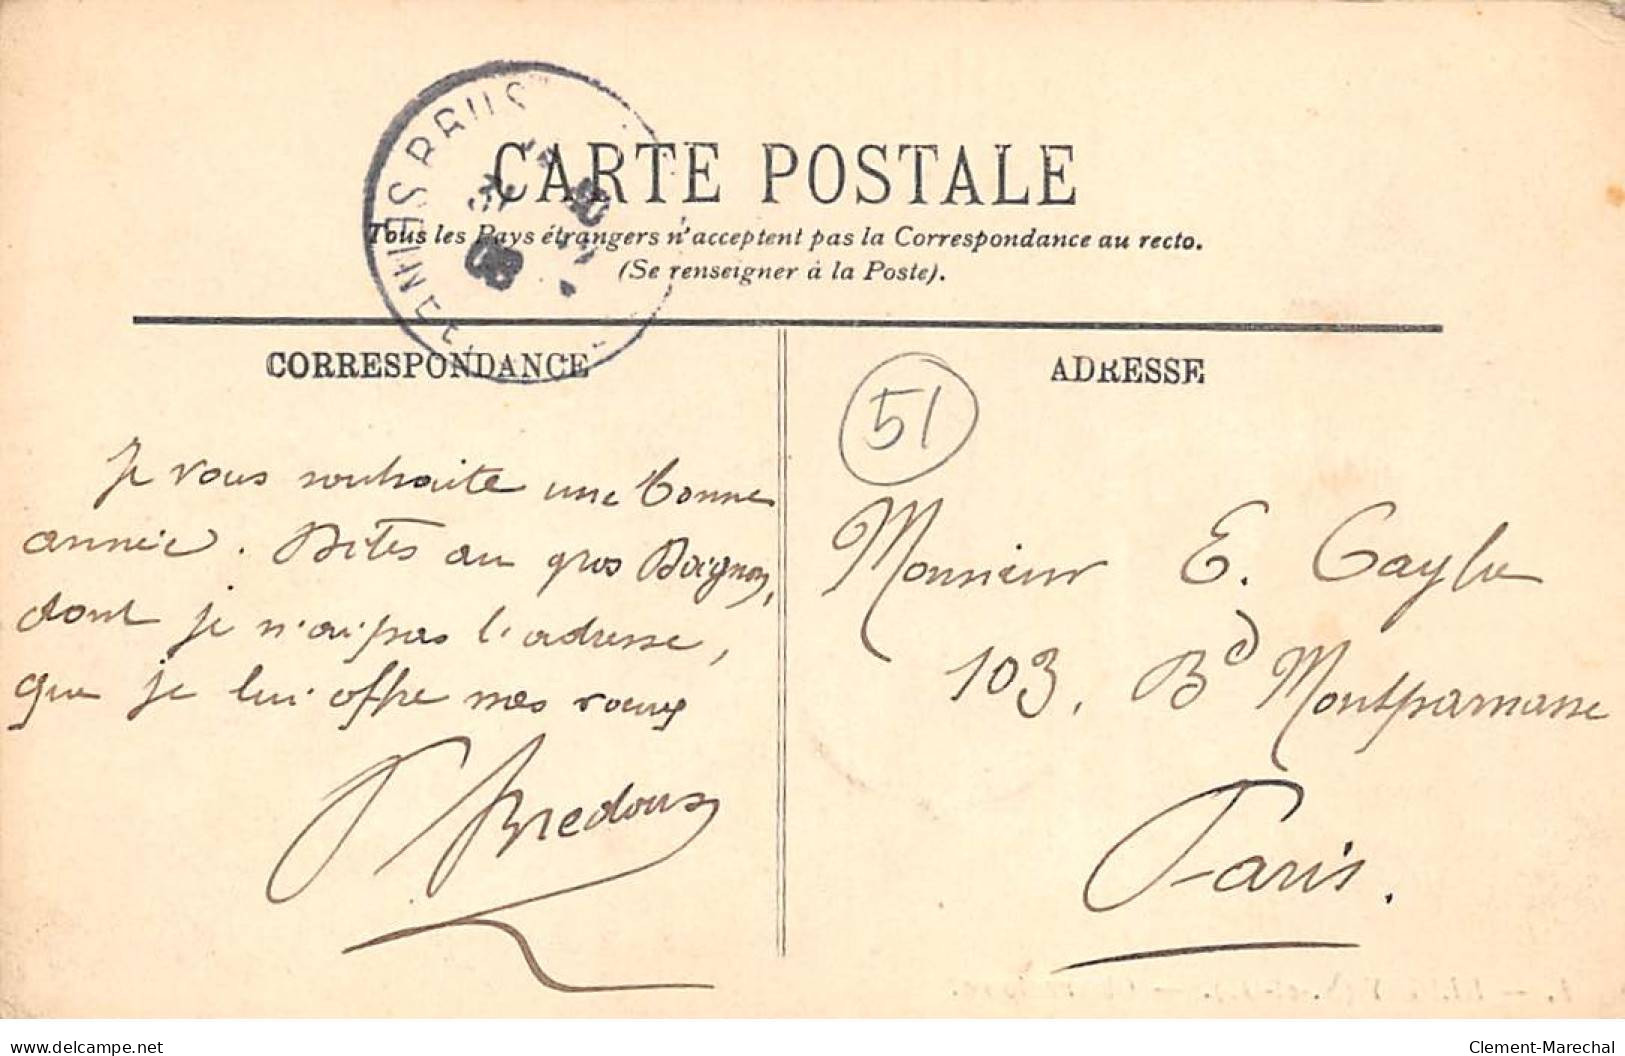 CARTE POSTALE
Tous les Pays étrangers n'acceptent pas la Correspondance au recto.
(Se renseigner à la Poste).
CORRESPONDANCE
ADRESSE
51
Je vous souhaite une bonne
année. Dites au gros
dont je n'ai pas l'adresse,
que je lui offre mes voeux
Monsieur E. Cayla
103, Bd Montparnasse
Paris.
www.delcampe.net
Clement-Marechal